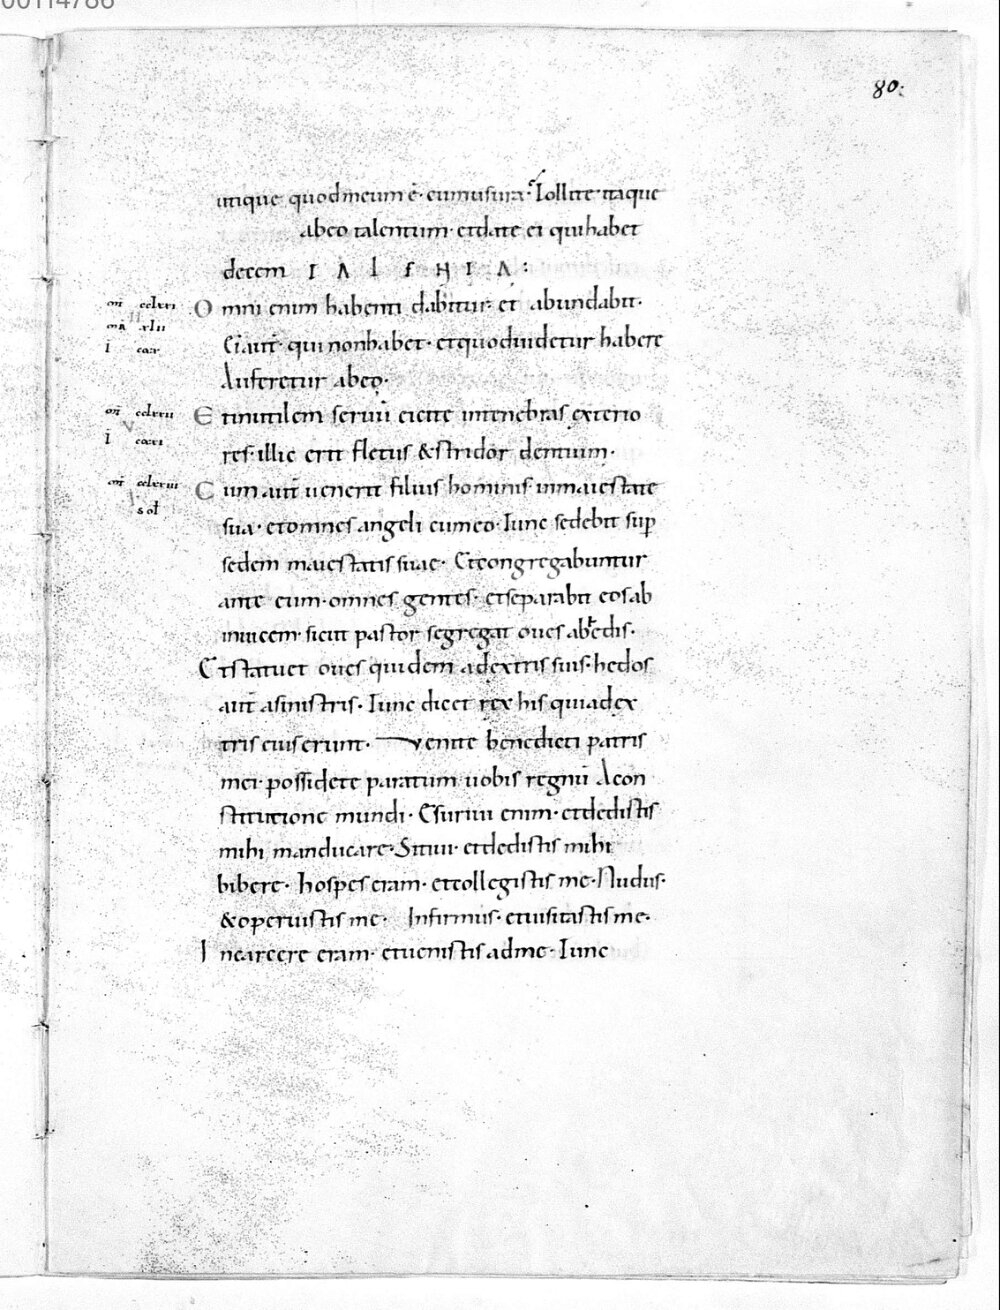 80:
utique quod meum ē· cum usura· Tollite itaque
ab eo talentum· et date ei qui habet
decem
Omni enim habenti dabitur· et abundabit·
Ei aut̄· qui non habet· et quod uidetur habere
Auferetur ab eo·
Et inutilem seruū eicite in tenebras exterio
res· illic erit fletus & stridor dentium·
Cum aut̄ uenerit filius hominis in maiestate
sua· et omnes angeli cum eo· Tunc sedebit sup̄
sedem maiestatis suae· Et congregabuntur
ante eum· omnes gentes· et separabit eos ab
inuicem· sicut pastor segregat oues ab edis·
Et statuet oues quidem a dextris suis· hedos
aut̄ a sinistris· Tunc dicet rex his qui a dex
tris eius erunt· Venite benedicti patris
mei· possidete paratum uobis regnū A con
stitutione mundi· Esuriui enim· et dedistis
mihi manducare· Sitiui· et dedistis mihi
bibere· hospes eram· et collegistis me· Nudus·
& operuistis me· Infirmus· et uisitastis me·
In carcere eram· et uenistis ad me· Tunc